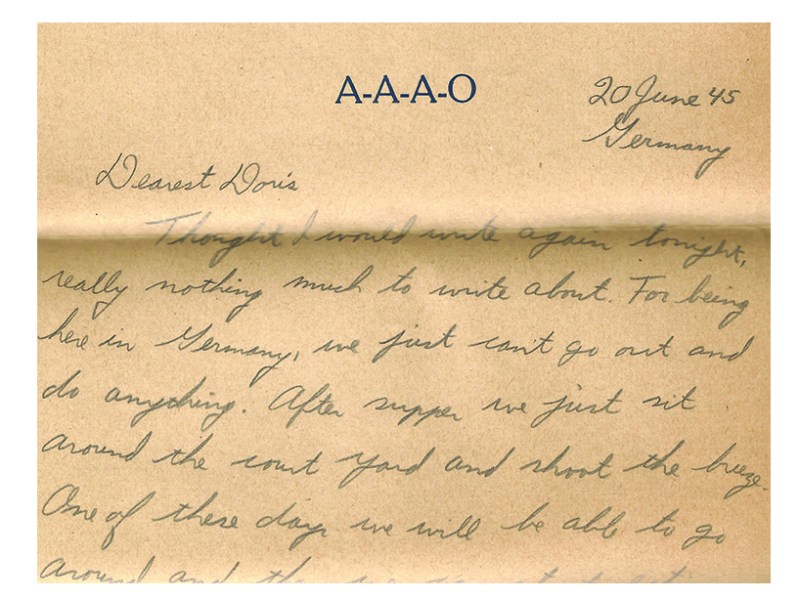 A-A-A-O
20 June 45
Germany
Dearest Doris
Thought I would write again tonight,
really nothing much to write about. For being
here in Germany, we just can't go out and
do anything. After supper we just sit
around the court yard and shoot the breeze.
One of these days we will be able to go
around and